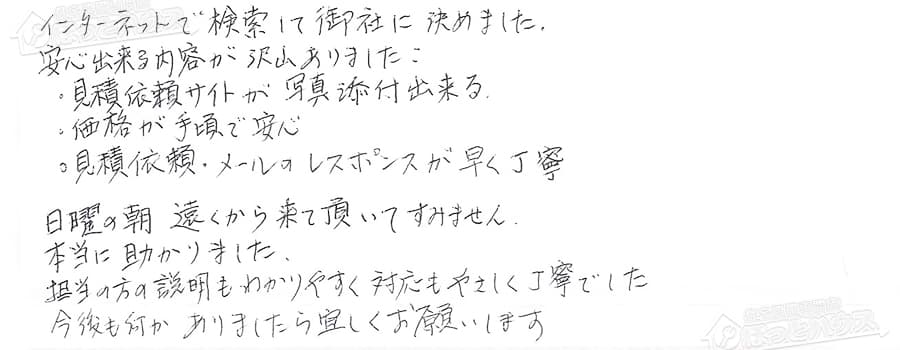 インターネットで検索して御社に決めました.
安心出来る内容が沢山ありました:
・見積依頼サイトが写真添付出来る.
・価格が手頃で安心
・見積依頼・メールのレスポンスが早く丁寧
日曜の朝 遠くから来て頂いてすみません.
本当に助かりました.
担当の方の説明もわかりやすく対応もやさしく丁寧でした
今後も何か ありましたら宜しくお願いします